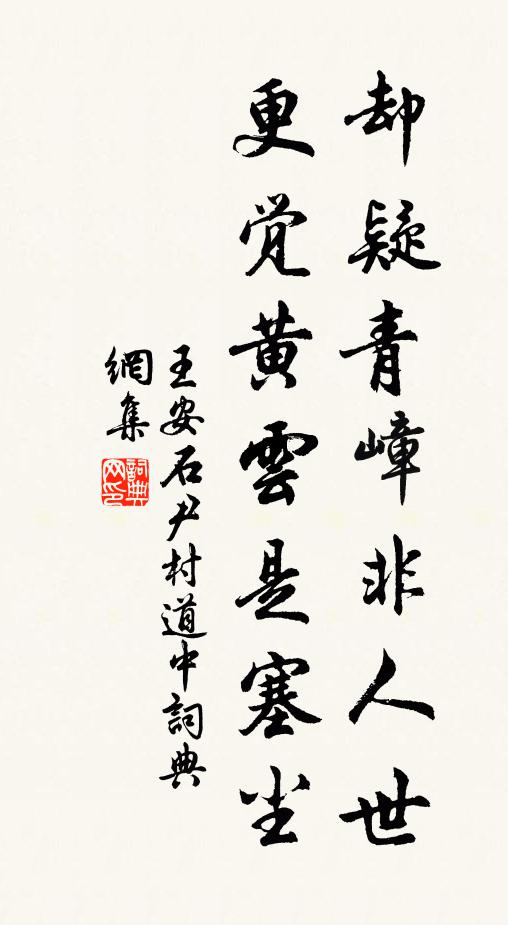 却疑青嶂非人世
更觉黄雲是塞尘
王安石尹村道中詞典
網集
詞典
网印